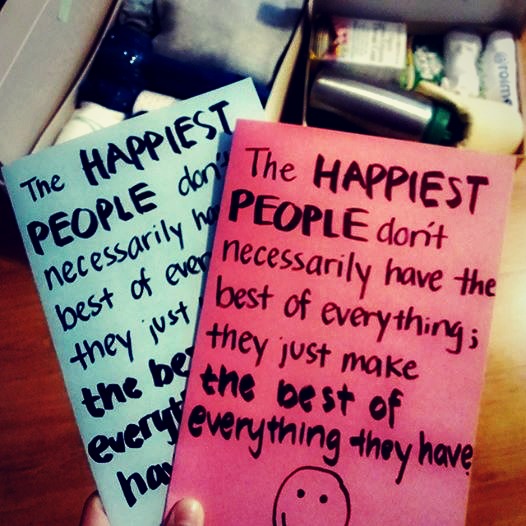 The HAPPIEST
PEOPLE don't
necessarily
best of
they just
the
The HAPPIEST
PEOPLE don't
necessarily have the
best of everything;
they just make
the best of
everything they have.